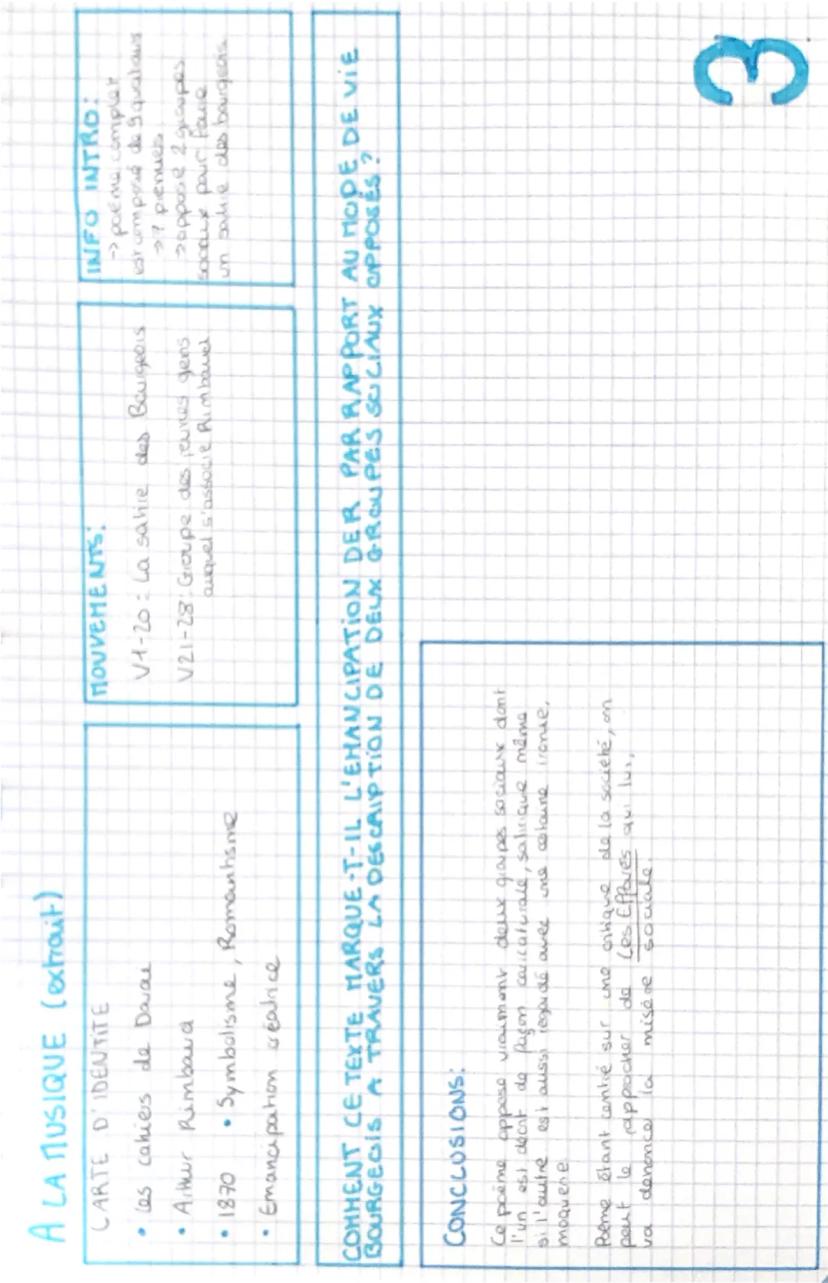 A LA MUSIQUE (extrait)
CARTE D'IDENTITE
• Les cahiers de Douai
• Arthur Rimbaud
• 1870 • Symbolisme, Romantisme
• Emancipation créatrice
MOUVEMENTS:
V1-20 : La satire des Bourgeois
V21-28 : Groupe des jeunes gens
auquel s'associe Rimbaud
INFO INTRO:
-> poème complet
est composé de 9 quatrains
-> ? pienues
-> oppose 2 groupes
sociaux pour faire
un satire des bourgeois
COMMENT CE TEXTE MARQUE-T-IL L'EMANCIPATION DER PAR RAPPORT AU MODE DE VIE
BOURGEOIS A TRAVERS LA DESCRIPTION DE DEUX GROUPES SOCIAUX OPPOSÉS ?
CONCLUSIONS:
Ce poème oppose vraiment deux groupes sociaux dont
l'un est décrit de façon caricaturale, satirique même
si l'autre est aussi regardé avec une certaine ironie,
moquerie
Poème étant centré sur une critique de la société, on
peut le rapprocher de Les Effarés qui lui,
va dénoncer la misère sociale.
3